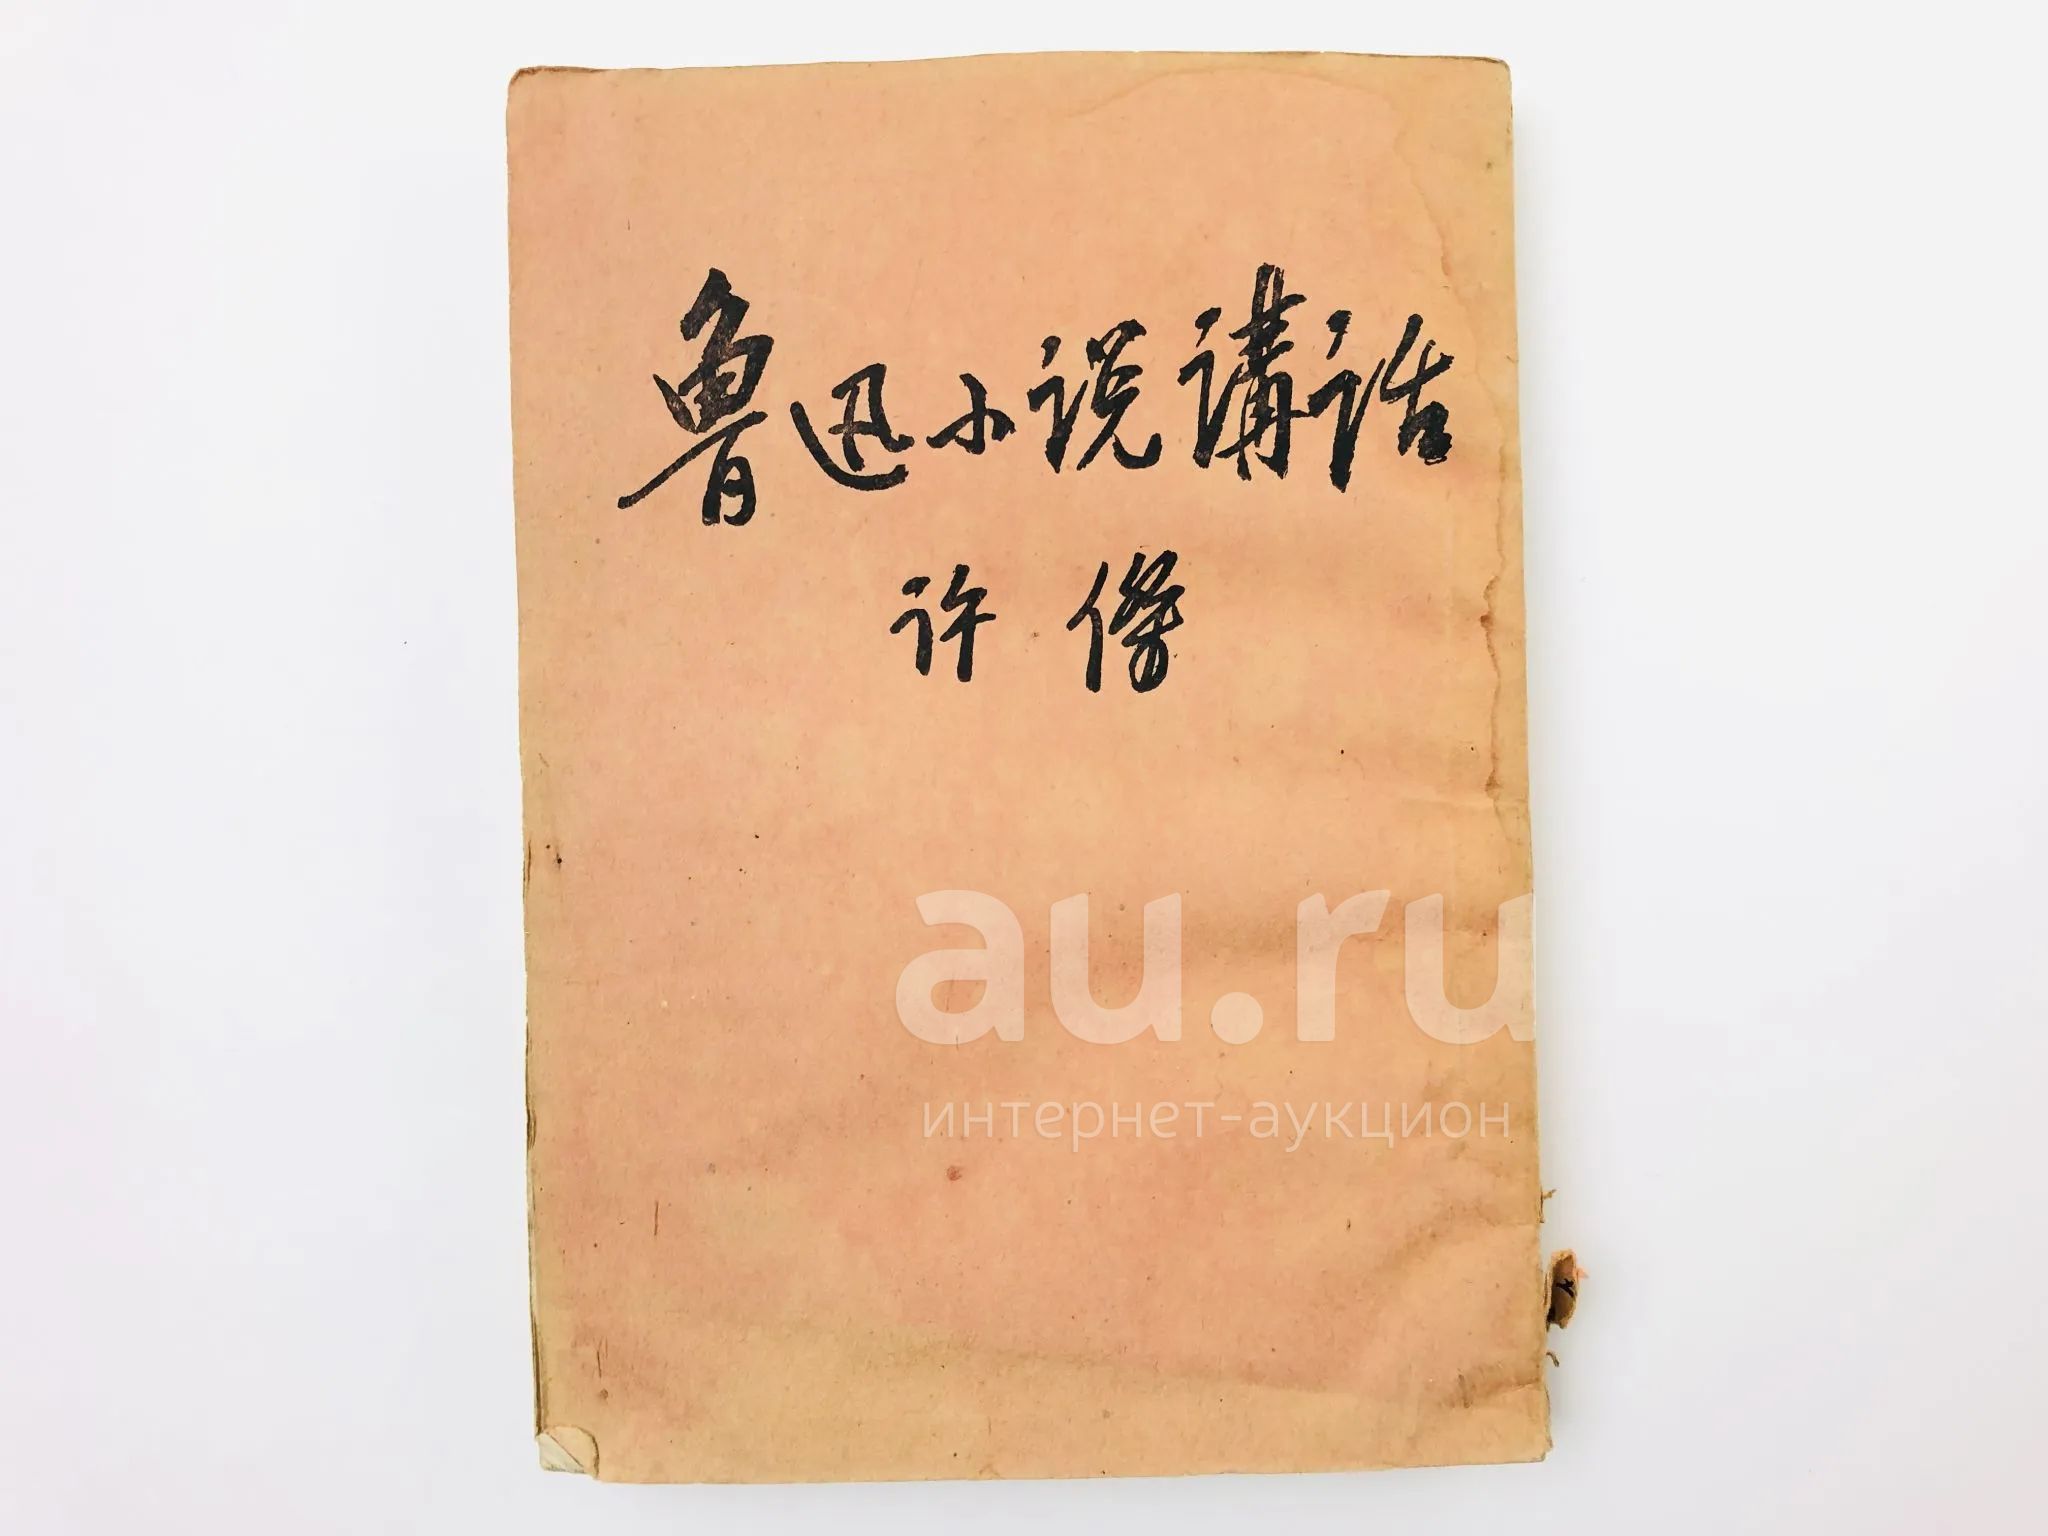 鲁迅小说講话
许傑
au.ru
интернет-аукцион